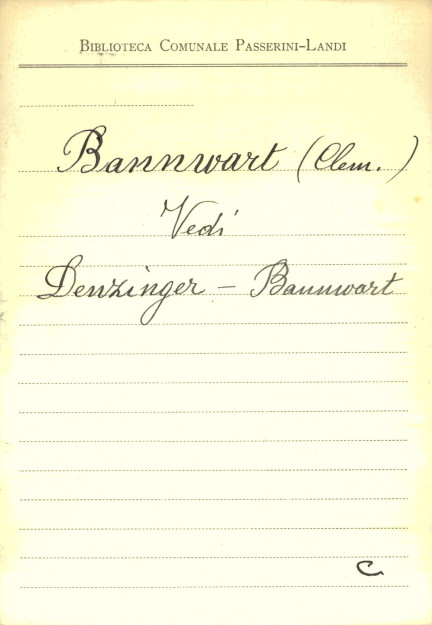 BIBLIOTECA COMUNALE PASSERINI-LANDI
Bannwart (Clem.)
Vedi
Denzinger - Bannwart
C